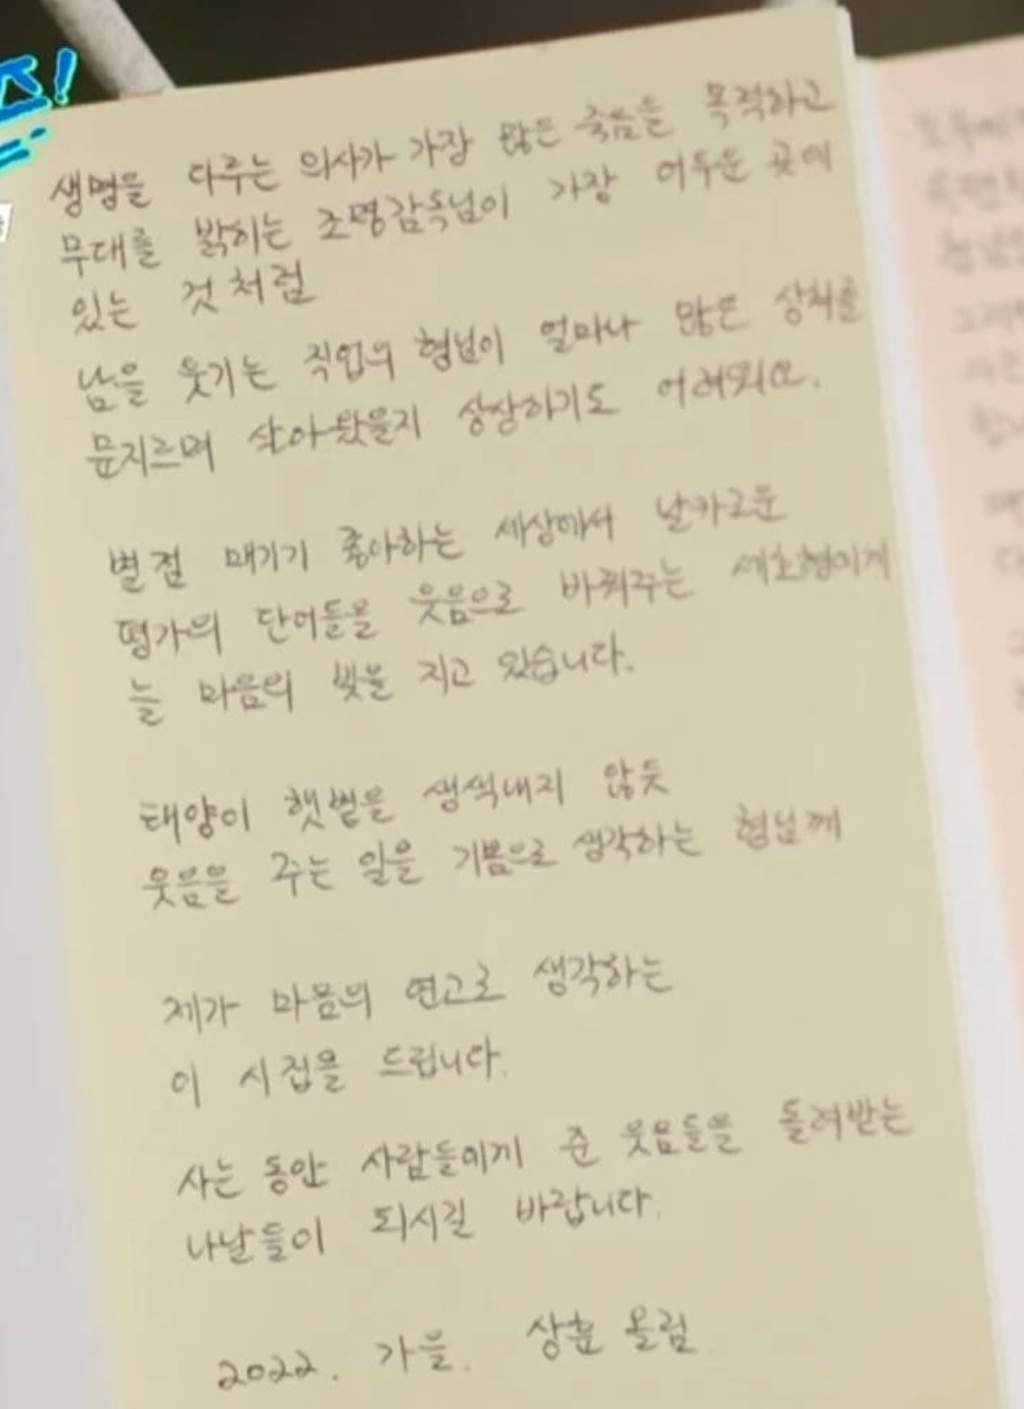 생명을 다루는 의사가 가장 많은 죽음을 목격하고
무대를 밝히는 조명감독님이 가장 어두운 곳에
있는 것처럼
남을 웃기는 직업의 형님이 얼마나 많은 상처를
문지르며 살아왔을지 상상하기도 어려워요.
별점 매기기 좋아하는 세상에서 날카로운
평가의 단어들을 웃음으로 바꿔주는 세호형에게
늘 마음의 빚을 지고 있습니다.
태양이 햇볕을 생색내지 않듯
웃음을 주는 일을 기쁨으로 생각하는 형님께
제가 마음의 연고로 생각하는
이 시집을 드립니다.
사는 동안 사람들에게 준 웃음들을 돌려받는
나날들이 되시길 바랍니다.
2022. 가을. 상훈 올림